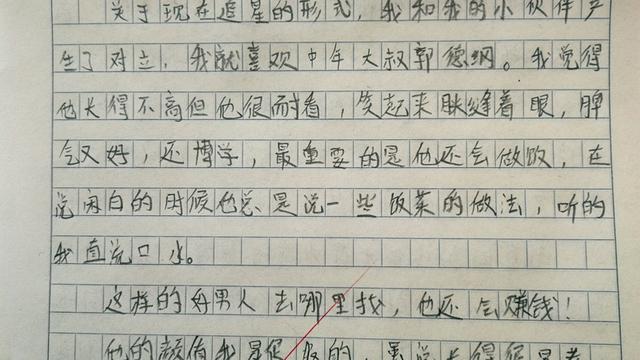 关于现在追星的形式，我和我的小伙伴产
生了对立，我就喜欢中年大叔郭德纲。我觉得
他长得不高但他很耐看，笑起来眯缝着眼，脾
气又好，还博学，最重要的是他还会做饭，在
说闲白的时候也总是说一些饭菜的做法，听的
我直流口水。
这样的好男人去哪里找，他还会赚钱！
他的颜值我是很 的，虽说长得很